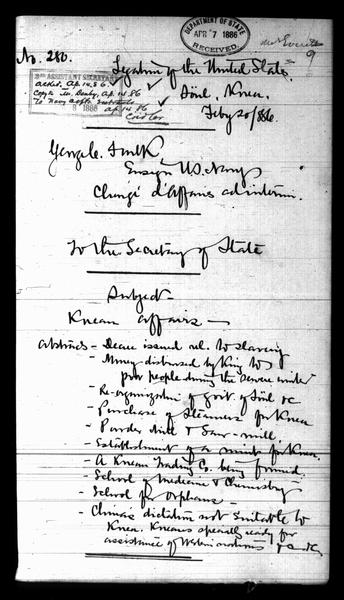 DEPARTMENT OF STATE
APR 7 1886
RECEIVED.
No. 280.
Legation of the United States.
Söul, Korea,
Feby 20/886.
3RD ASSISTANT SECRETARY
Ap. 14, 86
Copy to Denby, Ap. 14 86
To Navy
Ap 14 86
George C. Foulk,
Ensign U.S. Navy
Chargé d'Affaires ad interim.
To the Secretary of State
Subject-
Korean affairs-
Abstract - Decree issued rel. to slavery
- Money disbursed by King to
poor people during the severe winter
- Re-organization of Govt. of Söul &c
- Purchase of Steamers for Korea
- Powder Mill & Saw-mill.
- Establishment of a mint for Korea.
- A Korean Trading Co. being formed
- School of Medicine & Chemistry
- School for Orphans -
- China's dictation not suitable to
Korea. Koreans specially ready for
assistance of Western nations